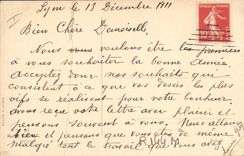 Lyon le 13 Décembre 1911
Bien Chère Demoiselle,
Nous vous voulons être les premiers
à vous souhaiter la bonne année.
Acceptez donc nos souhaits qui
consistent à ce que vos désirs les plus
vifs se réalisent pour votre bonheur.
avons reçu votre lettre avec plaisir et
pensons souvent à vous. Nous allons
bien et pensons que vous êtes de même
malgré tout le travail que vous avez
R.144 M